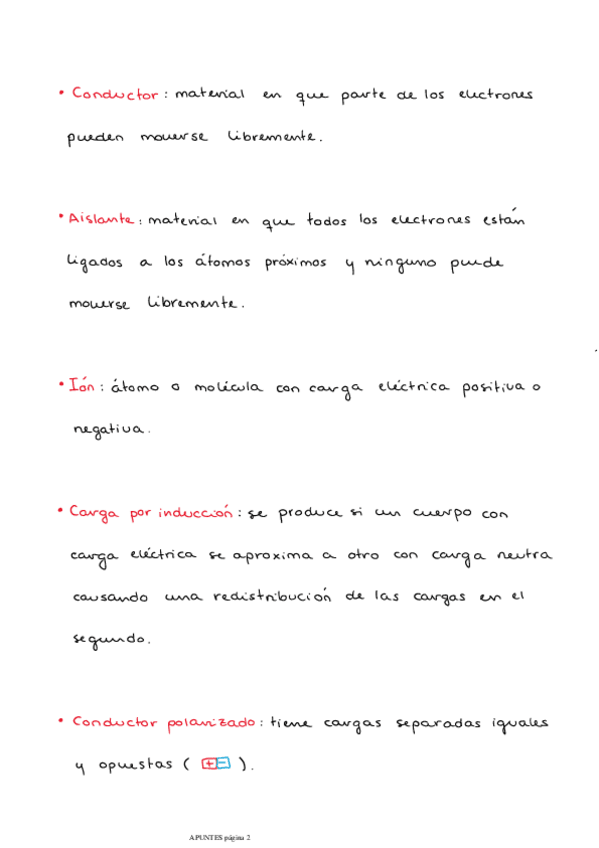 • Conductor: material en que parte de los electrones
pueden moverse libremente.
• Aislante: material en que todos los electrones están
ligados a los átomos próximos y ninguno puede
moverse libremente.
• Ión: átomo o molécula con carga eléctrica positiva o
negativa.
• Carga por inducción: se produce si un cuerpo con
carga eléctrica se aproxima a otro con carga neutra
causando una redistribución de las cargas en el
segundo.
• Conductor polarizado: tiene cargas separadas iguales
y opuestas ( + - ).
APUNTES página 2